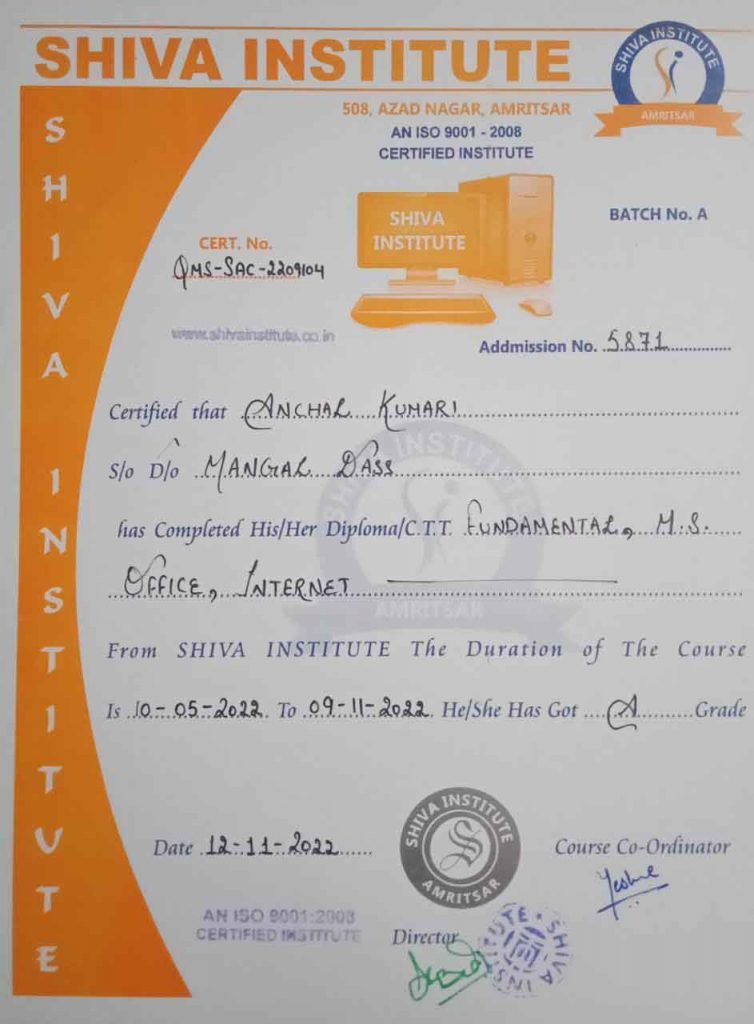 SHIVA INSTITUTE
SHIVA INSTITUTE
AMRITSAR
508, AZAD NAGAR, AMRITSAR
AN ISO 9001 - 2008
CERTIFIED INSTITUTE
SHIVA INSTITUTE
SHIVA
INSTITUTE
BATCH No. A
CERT. No.
QMS-SAC-2209104
www.shivainstitute.co.in
Addmission No. 5871
Certified that ANCHAL KUMARI
S/o D/o MANGAL DASS
has Completed His/Her Diploma/C.T.T. FUNDAMENTAL, M.S.
OFFICE, INTERNET
SHIVA INSTITUTE
AMRITSAR
From SHIVA INSTITUTE The Duration of The Course
Is 10-05-2022 To 09-11-2022 He/She Has Got A Grade
SHIVA INSTITUTE
AMRITSAR
Date 12-11-2022
Course Co-Ordinator
AN ISO 9001:2008
CERTIFIED INSTITUTE
Director
SHIVA INSTITUTE